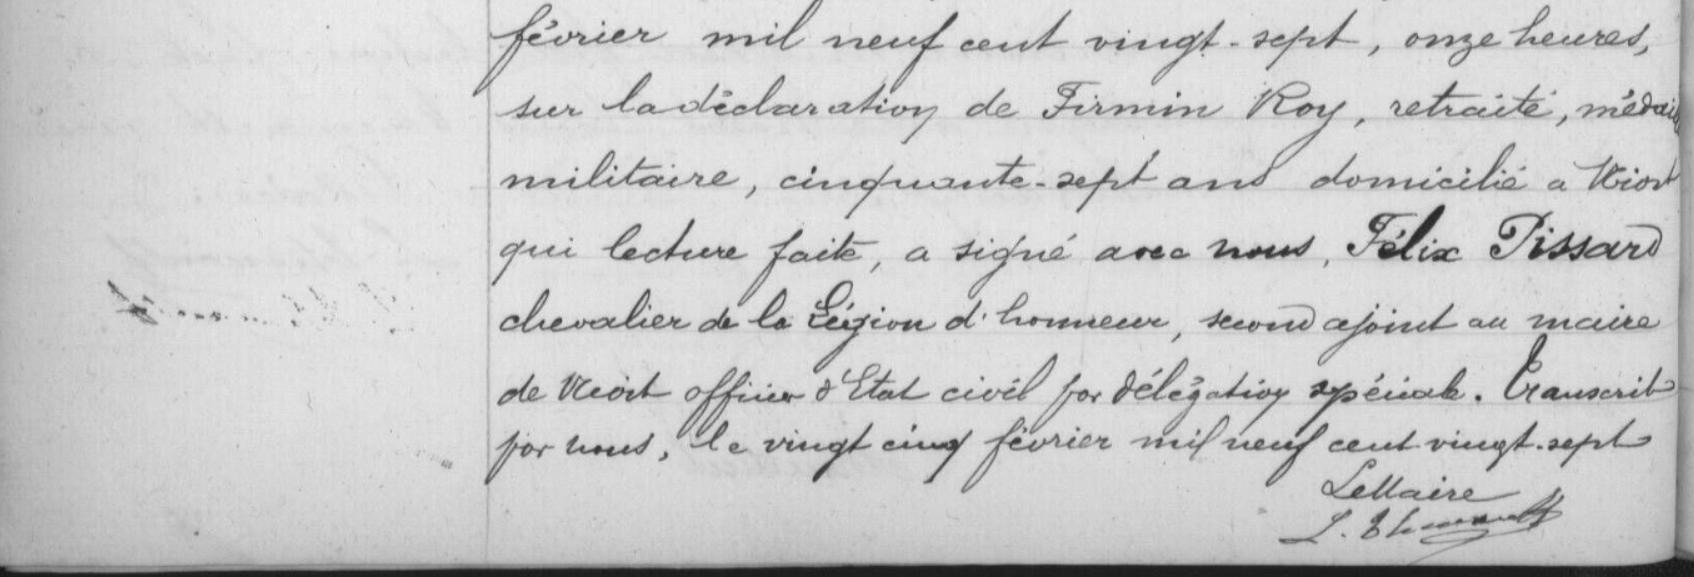 février mil neuf cent vingt-sept, onze heures,
sur la déclaration de Firmin Roy, retraité, médaillé
militaire, cinquante-sept ans domicilié a Niort
qui lecture faite, a signé avec nous, Félix Pissard
chevalier de la Légion d'honneur, second ajoint au maire
de Niort officier d'Etat civil par délégation spéciale. Transcrit
par nous, le vingt cinq février mil neuf cent vingt-sept
Le Maire